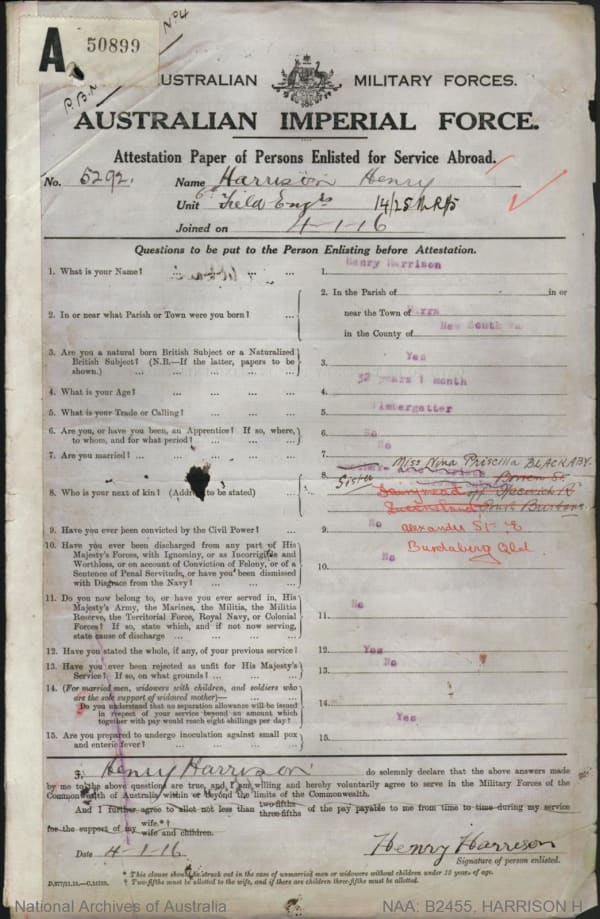 A 50899
No 4
P.B.
AUSTRALIAN MILITARY FORCES.
AUSTRALIAN IMPERIAL FORCE.
Attestation Paper of Persons Enlisted for Service Abroad.
No. 5292. Name Harrison Henry
Unit Field Engrs 14/25
Joined on 4-1-16
Questions to be put to the Person Enlisting before Attestation.
1. What is your Name? ... ... ... 1. Henry Harrison
2. In or near what Parish or Town were you born? ... 2. In the Parish of in or
near the Town of
in the County of New South Wa
3. Are you a natural born British Subject or a Naturalized
British Subject? (N.B.—If the latter, papers to be
shown.) ... ... ... ... 3. Yes
4. What is your Age? ... ... ... 4. 32 years 1 month
5. What is your Trade or Calling? ... ... ... 5. Timbergetter
6. Are you, or have you been, an Apprentice? If so, where,
to whom, and for what period? ... ... ... 6. No
7. Are you married? ... ... ... ... 7. No
8. Who is your next of kin? (Address to be stated) ... 8. Sister Miss Nina Priscilla BLACKABY
Alexander St E
Bundaberg Qld
9. Have you ever been convicted by the Civil Power? ... 9. No
10. Have you ever been discharged from any part of His
Majesty's Forces, with Ignominy, or as Incorrigible and
Worthless, or on account of Conviction of Felony, or of a
Sentence of Penal Servitude, or have you been dismissed
with Disgrace from the Navy? ... ... 10. No
11. Do you now belong to, or have you ever served in, His
Majesty's Army, the Marines, the Militia, the Militia
Reserve, the Territorial Force, Royal Navy, or Colonial
Forces? If so, state which, and if not now serving,
state cause of discharge ... ... ... 11. No
12. Have you stated the whole, if any, of your previous service? 12. Yes
13. Have you ever been rejected as unfit for His Majesty's
Service? If so, on what grounds? ... ... 13. No
14. (For married men, widowers with children, and soldiers who
are the sole support of widowed mother)—
Do you understand that no separation allowance will be issued
in respect of your service beyond an amount which
together with pay would reach eight shillings per day? 14. Yes
15. Are you prepared to undergo inoculation against small pox
and enteric fever? ... ... ... ... 15.
I, Henry Harrison do solemnly declare that the above answers made
by me to the above questions are true, and I am willing and hereby voluntarily agree to serve in the Military Forces of the
Commonwealth of Australia within or beyond the limits of the Commonwealth.
And I further agree to allot not less than two-fifths three-fifths of the pay payable to me from time to time during my service
for the support of my wife.*† wife and children.
Date 4-1-16 Henry Harrison
Signature of person enlisted.
* This clause should be struck out in the case of unmarried men or widowers without children under 18 years of age.
† Two-fifths must be allotted to the wife, and if there are children three-fifths must be allotted.
National Archives of Australia NAA: B2455, HARRISON H